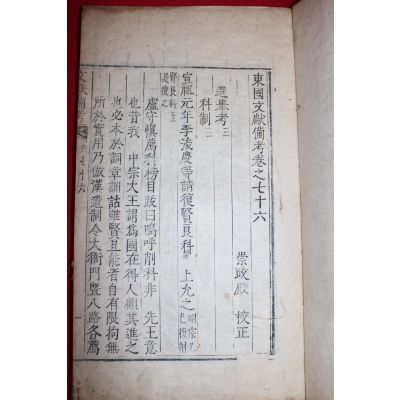 東國文獻備考卷之七十六
崇政殿 校正
選擧考三
科制二
宣祖元年李浚慶等請復賢良科 上允之
賢良科至是復之
盧守愼薦科榜目跋曰嗚呼削科非 先王意
也昔我 中宗大王謂爲國在得人顧其進之
也必本於詞章訓詁雖賢且能者自有限拘無
所於實用乃倣漢遺制令大衙門曁八路各薦